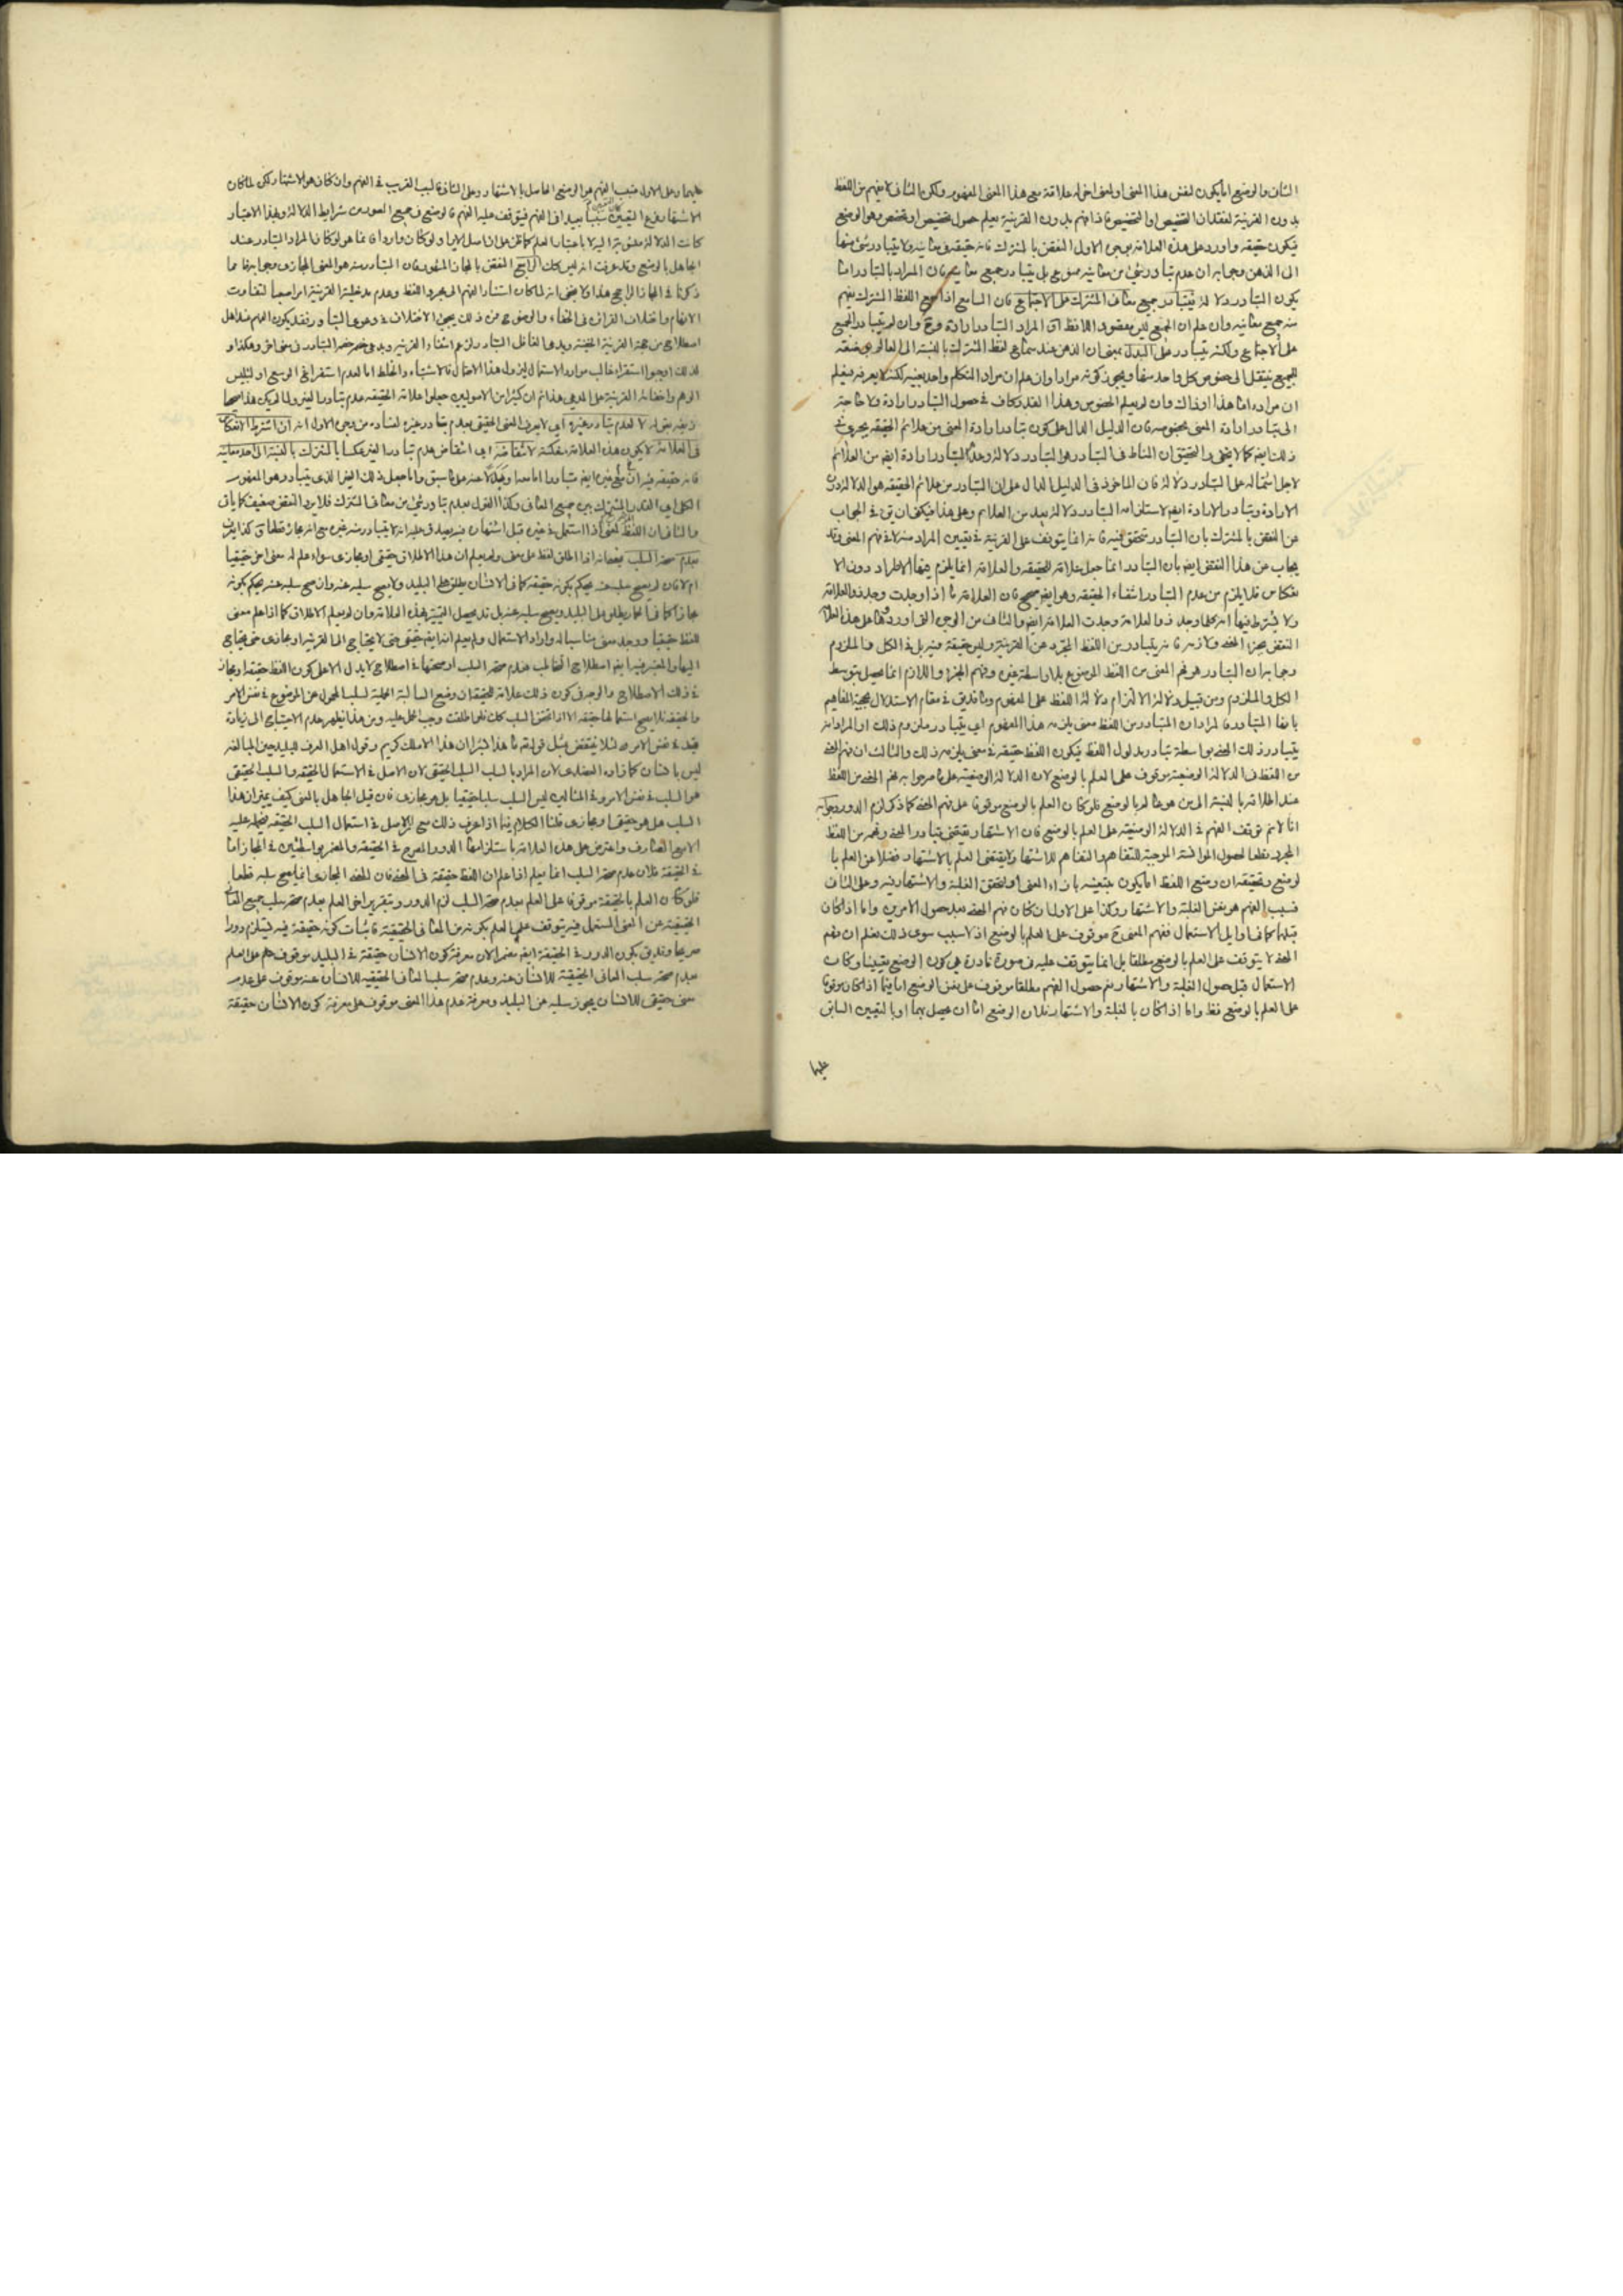 الثانى والوضع اما يكون لنفس هذا المعنى او لمعنى اخر له علاقة مع هذا المعنى المفهوم ولكن الثانى لا يفهم من اللفظ
بدون القرينة لفقدان التخصيص او التخصص فاذا فهم بدون القرينة يعلم حصول تخصيص او تخصص وهو الوضع
فيكون حقيقة واورد على هذه العلامة بوجوه الاول النقض بالمشترك فانه حقيقة فى معانيه ولا يتبادر شئ منها
الى الذهن وجوابه ان عدم تبادر شئ من معانيه ممنوع بل يتبادر جميع معانيه فان المراد بالتبادر اما
يكون التبادر دلالة فيتبادر جميع معانى المشترك على الاجتماع فان السامع اذا سمع اللفظ المشترك يفهم
منه جميع معانيه وان علم ان الجميع ليس مقصود اللافظ او المراد التبادر ارادة وح وان لم يتبادر الجميع
على الاجتماع ولكنه يتبادر على البدل بمعنى ان الذهن عند سماع لفظ المشترك بالنسبة الى العالم بوضعه
للجميع ينتقل الى خصوص كل واحد منها ويجوز كونه مرادا وان علم ان مراد المتكلم واحد بعينه لكنه لا يعرفه فيعلم
ان مراده اما هذا او ذاك وان لم يعلم الخصوص وهذا القدر كاف فى حصول التبادر ارادة ولا حاجة
الى تبادر ارادة المعنى بخصوصه فان الدليل الدال على كون تبادر ارادة المعنى من علائم الحقيقة يجرى فى
ذلك ايضا كما لا يخفى والتحقيق ان المناط فى التبادر هو التبادر دلالة وعد التبادر ارادة ايضا من العلائم
لاجل اشتماله على التبادر دلالة فان الماخوذ فى الدليل الدال على ان التبادر من علائم الحقيقة هو الدلالة دون
الارادة وتبادر الارادة ايضا لاستلزامه التبادر دلالة يعد من العلائم وعلى هذا فيكفى ان يق فى الجواب
عن النقض بالمشترك بان التبادر متحقق فيه فانه انما يتوقف على القرينة فى تعيين المراد منه لا فى فهم المعنى وقد
يجاب عن هذا النقض ايضا بان التبادر انما جعل علامة للحقيقة والعلامة انما يلزم فيها الاطراد دون الا
نعكاس فلا يلزم من عدم التبادر انتفاء الحقيقة وهو ايضا صحيح فان العلامة ما اذا وجدت وجد ذو العلامة
ولا يشترط فيها انه كلما وجد ذو العلامة وجدت العلامة ايضا والثانى من الوجوه التى اوردوها على هذه العلامة
النقض بجزء المعنى ولازمه فانه يتبادر من اللفظ المجرد عن القرينة وليس حقيقة فيه بل فى الكل والملزوم
وجوابه ان التبادر هو فهم المعنى من اللفظ الموضوع بلا واسطة غيره وفهم الجزء واللازم انما يحصل بتوسط
الكل والملزوم ومن قبيل دلالة الالتزام دلالة اللفظ على المفهوم وما قد يق فى مقام الاستدلال بحجية المفاهيم
بانها المتبادر فالمراد ان المتبادر من اللفظ معنى يلزمه هذا المفهوم اى يتبادر ملزوم ذلك او المراد انه
يتبادر ذلك المعنى بواسطة تبادر مدلول اللفظ فيكون اللفظ حقيقة فى معنى يلزمه ذلك والثالث ان فهم المعنى
من اللفظ فى الدلالة الوضعية موقوف على العلم بالوضع لان الدلالة الوضعية على ما صرحوا به فهم المعنى من اللفظ
عند اطلاقه بالنسبة الى من هو عالم بالوضع فلو كان العلم بالوضع موقوفا على فهم المعنى كما ذكر لزم الدور وجوابه
انا لا نم توقف الفهم فى الدلالة الوضعية على العلم بالوضع فان الاشتهار يقتضى تبادر المعنى وفهمه من اللفظ
المجرد قطعا لحصول المؤانسة الموجبة للتفاهم والتفاهم للاشتهار ولا يقتضى العلم بالاشتهار فضلا عن العلم با
لوضع وتحقيقه ان وضع اللفظ اما يكون بتعيينه بازاء المعنى او لتحقق الغلبة والاشتهار فيه وعلى الثانى
فسبب الفهم هو نفس الغلبة والاشتهار وكذا على الاول ان كان فهم المعنى بعد حصول الامرين واما اذا كان
قبلهما كما فى اوايل الاستعمال ففهم المعنى ح موقوف على العلم بالوضع اذ لا سبب سوى ذلك فعلم ان فهم
المعنى لا يتوقف على العلم بالوضع مطلقا بل انما يتوقف عليه فى صورة نادرة هى كون الوضع تعيينيا وكان
الاستعمال قبل حصول الغلبة والاشتهار نعم حصول الفهم مطلقا موقوف على نفس الوضع اما فيما اذا كان موقوفا
على العلم بالوضع فظ واما اذا كان بالغلبة والاشتهار فلان الوضع اما ان يحصل بهما او بالتعيين السابق
عليهما
عليهما وعلى الاول فسبب الفهم هو الوضع الحاصل بالاشتهار وعلى الثانى فالسبب القريب فى الفهم وان كان هو الاشتهار لكن لما كان
الاشتهار فرع التعيين كان التعيين سببا بعيدا فى الفهم فيتوقف عليه الفهم فالوضع فى جميع الصور من شرايط الدلالة وبهذا الاعتبار
الجاهل بالوضع وقد عرفت انه ليس كك الرابع النقض بالمجاز المشهور فان المتبادر منه هو المعنى المجازى وجوابه ما
ذكرنا فى المجاز الراجح هذا ولا يخفى انه لما كان استناد الفهم الى مجرد اللفظ وعدم مدخلية القرينة امرا صعبا لتفاوت
الافهام واختلاف القرائن فى الخفاء والوضوح فمن ذلك يجئ الاختلاف فى دعوى التبادر فقد يكون الفهم عند اهل
اصطلاح من جهة القرينة الخفية ويدعى الغافل التبادر لزعم انتفاء القرينة ويدعى خصمه التبادر فى معنى اخر وهكذا و
لذلك اوجبوا استقراء غالب موارد الاستعمال ليزول هذا الاحتمال فالاشتباه والخلط اما لعدم استفراغ الوسع او لتلبيس
الوهم واخفائه القرينة على المدعى هذا ثم ان كثيرا من الاصوليين جعلوا علامة الحقيقة عدم تبادر الغير ولما لم يكن هذا صحيحا
فى العلامة لا يكون هذه العلامة منعكسة لانتقاضه اى انتقاض عدم تبادر الغير عكسا بالمشترك بالنسبة الى احد معانيه
الكلى اى القدر المشترك بين جميع المعانى وكذا القول بعدم تبادر شئ من معانى المشترك فلا يرد النقض ضعيف كما ياتى
والثانى ان اللفظ لمعنى اذا استعمل فى غيره قبل اشتهاره فيه يصدق عليه انه لا يتبادر منه غيره مع انه مجاز قطعا وكذا يعرف
بعدم صحة السلب بمعنى انه اذا اطلق لفظ على معنى ولم يعلم ان هذا الاطلاق حقيقى او مجازى سواء علم له معنى اخر حقيقيا
ام لا فان لم يصح سلبه عنه يحكم بكونه حقيقة كما فى الانسان يطلق على البليد ولا يصح سلبه عنه وان صح سلبه عنه يحكم بكونه
مجازا كما فى الحمار يطلق على البليد ويصح سلبه عنه بل قد يحصل التمييز بهذه العلامة وان لم يعلم الاطلاق كما اذا علم معنى
للفظ حقيقيا ووجد معنى مناسبا له واراد الاستعمال ولم يعلم انه ايضا حقيقى حتى لا يحتاج الى القرينة او مجازى حتى يحتاج
اليها والمعتبر فيه ايضا اصطلاح التخاطب فعدم صحة السلب او صحتها فى اصطلاح لا يدل الا على كون اللفظ حقيقة او مجازا
فى ذلك الاصطلاح والوجه فى كون ذلك علامة للحقيقة ان وضع السالبة الحملية لسلب المحمول عن الموضوع فى نفس الامر
قيد فى نفس الامر لئلا ينتقض بمثل قوله تع ما هذا بشرا ان هذا الا ملك كريم وقول اهل العرف للبليد حين المبالغة
ليس بانسان كما زاده العضدى لان المراد بالسلب السلب الحقيقى لان الاصل فى الاستعمال الحقيقة والسلب الحقيقى
هو السلب فى نفس الامر وفى المثالين ليس السلب سلبا حقيقيا بل هو مجازى فان قيل الجاهل بالمعنى كيف يميز ان هذا
السلب هل هو حقيقى او مجازى قلنا الكلام فيما اذا عرف ذلك مع ان الاصل فى استعمال السلب الحقيقة فيحمل عليه
الا مع الصارف واعترض على هذه العلامة باستلزامها الدور المصرح فى الحقيقة والمضمر بواسطتين فى المجاز اما
فى الحقيقة فلان عدم صحة السلب انما يعلم اذا علم ان اللفظ حقيقة فى المعنى فان المعنى المجازى انما يصح سلبه قطعا
فلو كان العلم بالحقيقة موقوفا على العلم بعدم صحة السلب لزم الدور وبتقرير اخر العلم بعدم صحة سلب جميع المعانى
الحقيقية عن المعنى المستعمل فيه يتوقف على العلم بكونه من المعانى الحقيقية فاثبات كونه حقيقة فيه يستلزم دورا
صريحا وقد يق بكون الدور فى الحقيقة ايضا مضمرا لان معرفة كون الانسان حقيقة فى البليد موقوف على العلم
بعدم صحة سلب المعانى الحقيقية للانسان عنه وعدم صحة سلب المعانى الحقيقية للانسان عنه موقوف على عدم
معنى حقيقى للانسان يجوز سلبه عن البليد ومعرفة عدم هذا المعنى موقوف على معرفة كون الانسان حقيقة